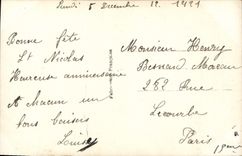 Lundi 5 Decembre 12. 1921
Bonne fête
St Nicolas
Heureuse anniversaire
A Chacun un
bons baisers
Louise
Monsieur Henry
Besnard Moreau
282 Rue
Lecourbe
Paris